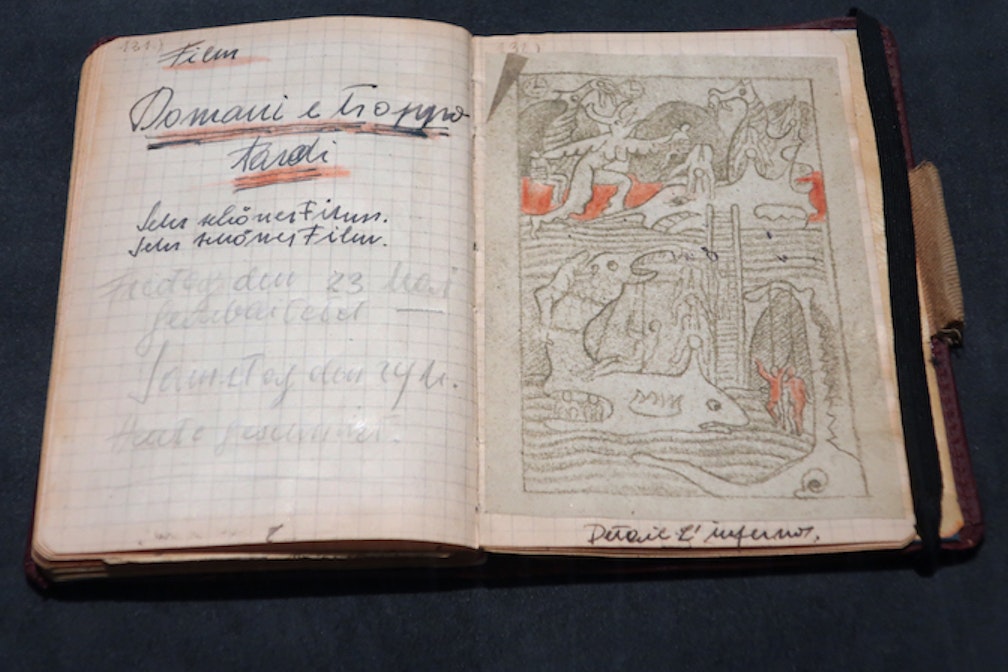 131)
Film
Domani e troppo
tardi
Sehr schönes Film.
Sehr schönes Film.
Freitag den 23 Mai
Samstag den 24
Heute
132)
Detaie L'infernos.